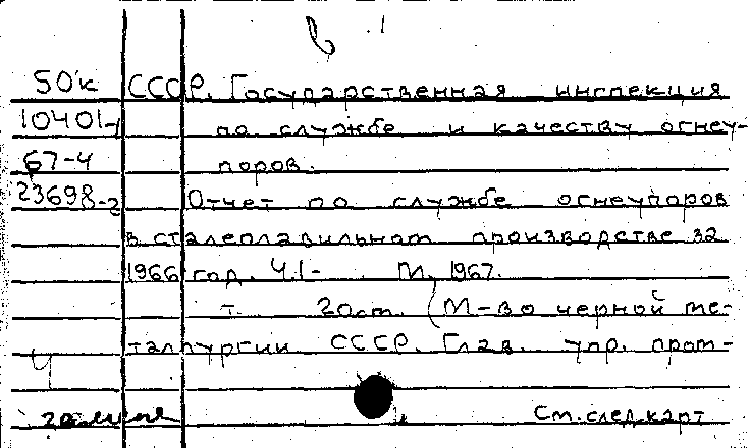 в 1
50к СССР. Государственная инспекция
10401-1 по службе и качеству огнеу-
67-4 поров.
23698-2 Отчет по службе огнеупоров
в сталеплавильном производстве за
1966 год. Ч.1- М., 1967.
т. 20 см. (М-во черной ме-
таллургии СССР. Глав. упр. прот-
Ч
См. след. карт